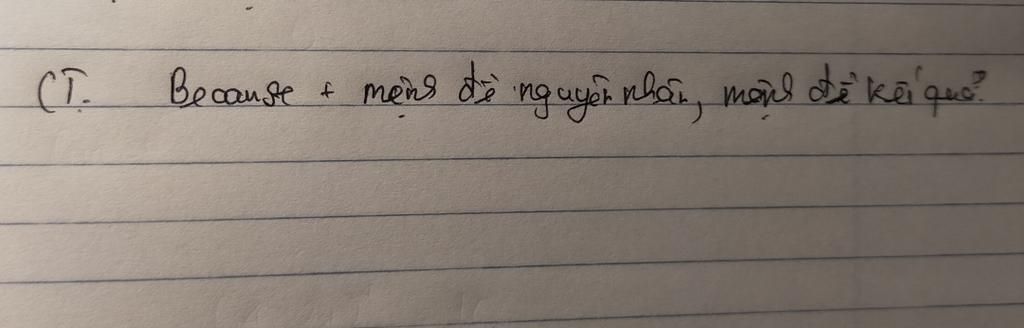 CT. Because + mệnh đề nguyên nhân, mệnh đề kết quả.